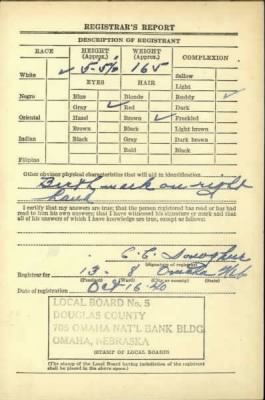 REGISTRAR'S REPORT
DESCRIPTION OF REGISTRANT
RACE HEIGHT (Approx.) WEIGHT (Approx.) COMPLEXION
White ✓ 165 Sallow
EYES HAIR Light
Negro Blue Blonde Ruddy ✓
Gray ✓ Red Dark
Oriental Hazel Brown ✓ Freckled
Brown Black Light brown
Indian Black Gray Dark brown
Bald Black
Filipino
Other obvious physical characteristics that will aid in identification
Birth mark on right
hand
I certify that my answers are true; that the person registered has read or has had
read to him his own answers; that I have witnessed his signature or mark and that
all of his answers of which I have knowledge are true, except as follows:
C. E. Donoghue
(Signature of registrar)
Registrar for 13 - 8 Omaha Neb
(Precinct) (Ward) (City or county) (State)
Date of registration Oct 16 40
LOCAL BOARD No. 5
DOUGLAS COUNTY
705 OMAHA NAT'L BANK BLDG.
OMAHA, NEBRASKA
(STAMP OF LOCAL BOARD)
(The stamp of the Local Board having jurisdiction of the registrant
shall be placed in the above space.)